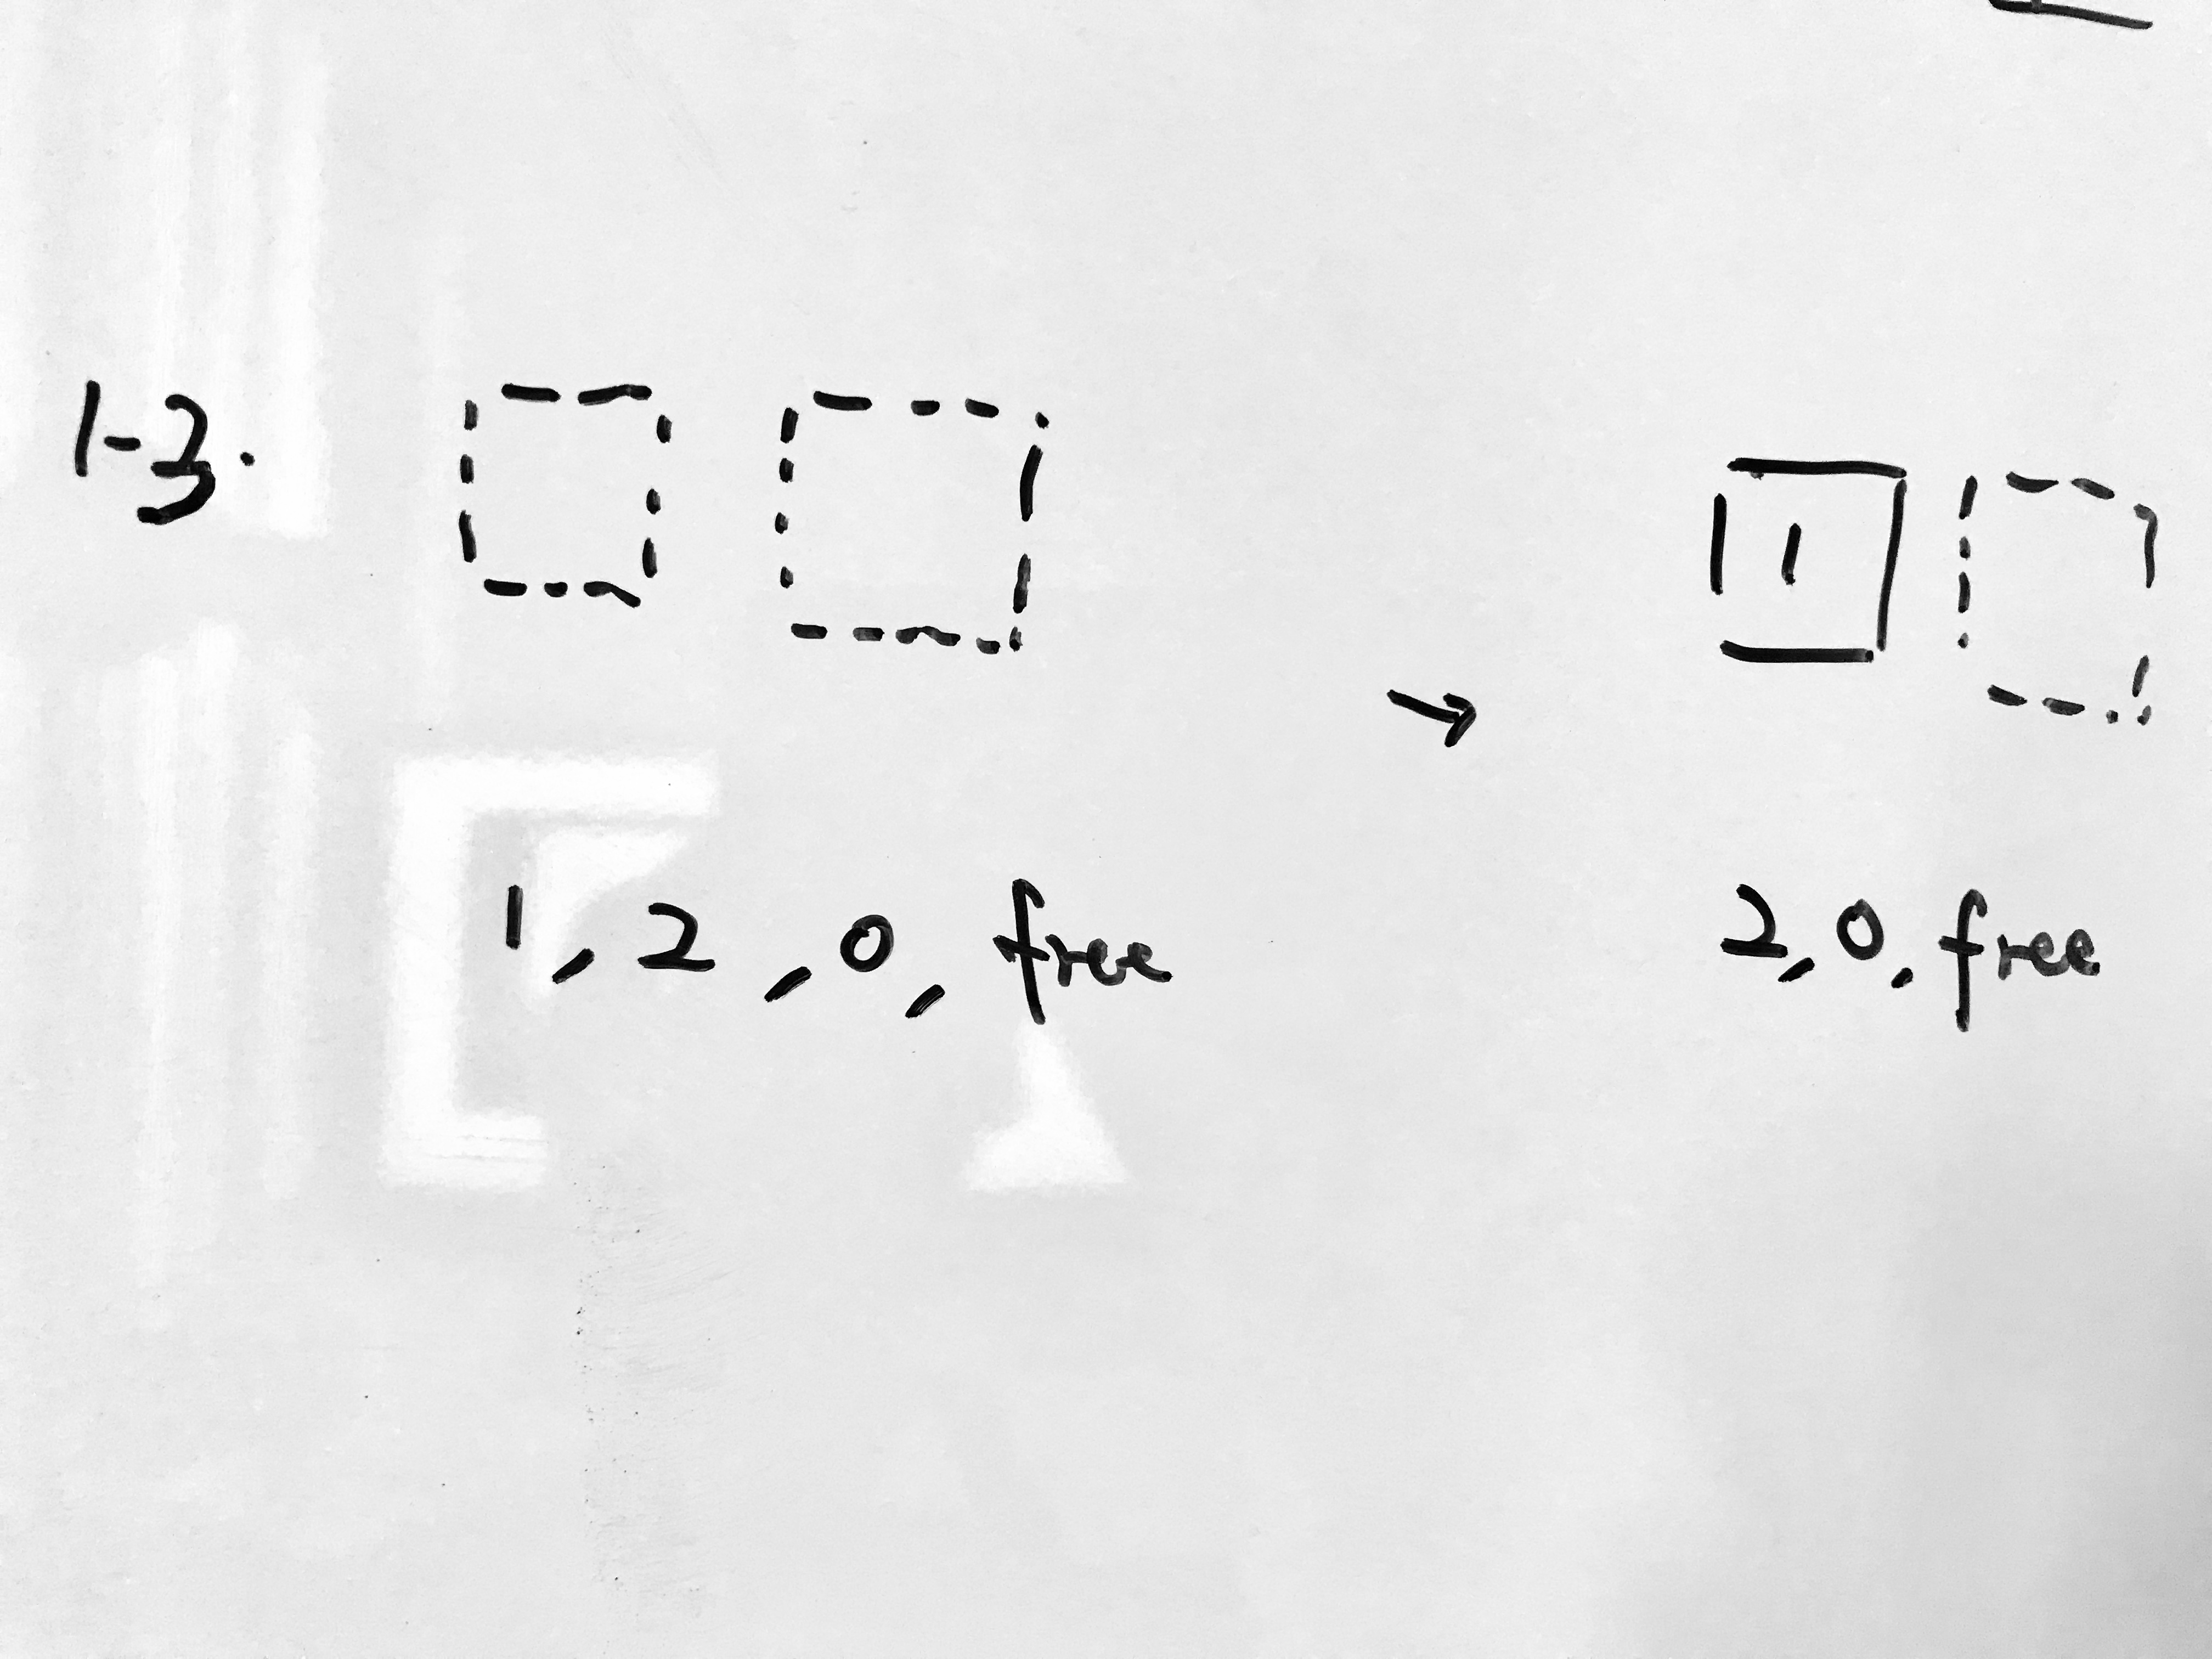 1-3.
1
→
1, 2, 0, free
2, 0, free